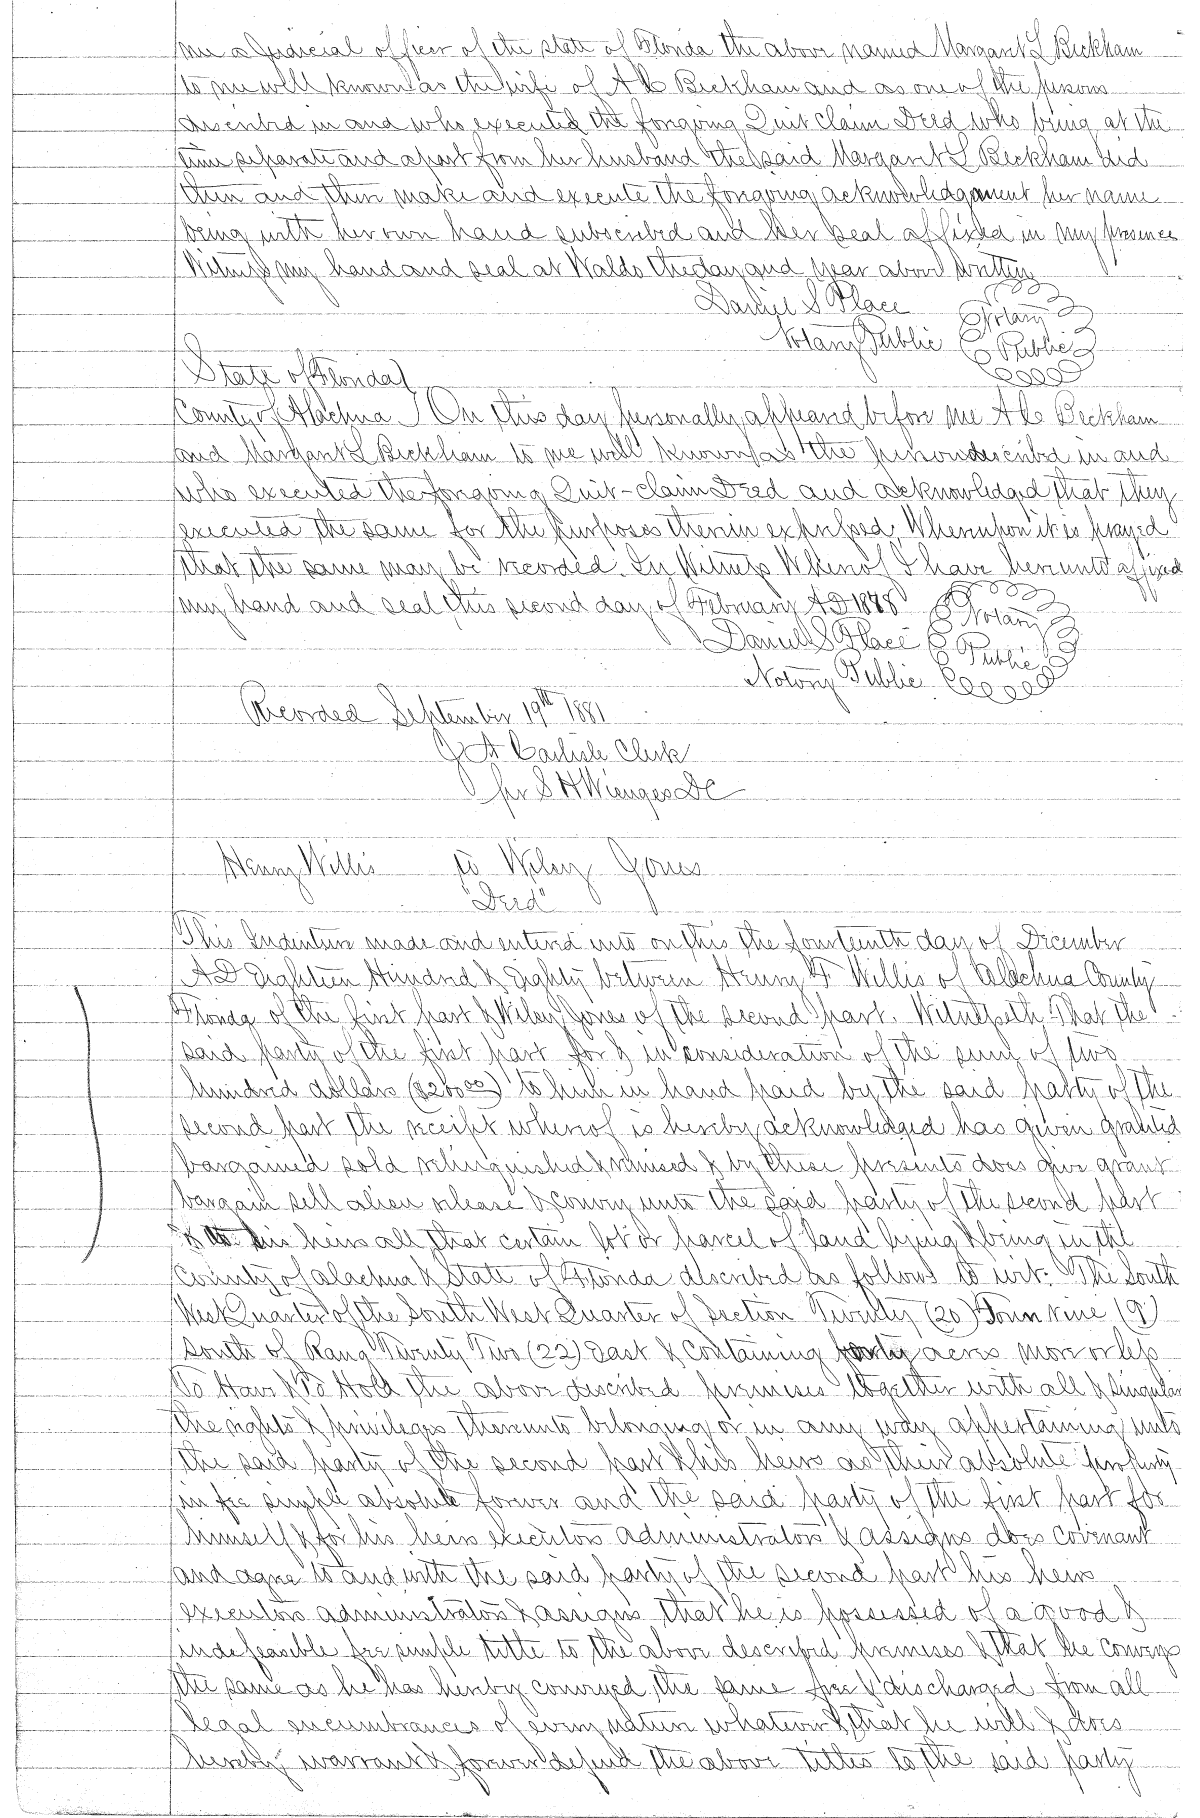 me a Judicial officer of the state of Florida the above named Margaret L Beckham
to me well known as the wife of A C Beckham and as one of the persons
discribed in and who executed the forgoing Quit Claim Deed who being at the
time separate and apart from her husband the said Margaret L Beckham did
then and there make and execute the forgoing acknowledgement her name
being with her own hand subscribed and her seal affixed in my presence
Witness my hand and seal at Waldo the day and year above written
Daniel S Place
Notary Public
Notary
Public
State of Florida
County of Alachua On this day personally appeared before me A C Beckham
and Margaret L Beckham to me well known as the persons discribed in and
who executed the forgoing Quit-claim Deed and acknowledged that they
executed the same for the purposes therein expressed, Whereupon it is prayed
that the same may be recorded. In Witness Whereof I have hereunto affixed
my hand and seal, this second day of February AD 1878
Daniel S Place
Notary Public
Notary
Public
Recorded September 19th 1881
J A Carlisle Clerk
pr S H Wienges DC
Henry Willis to Wiley Jones
"Deed"
This Indenture made and entered into on this the fourteenth day of December
AD Eighteen Hundred & Eighty between Henry F Willis of Alachua County
Florida of the first part & Wiley Jones of the second part. Witnesseth: That the
said party of the first part for & in consideration of the sum of two
hundred dollars ($200.00) to him in hand paid by the said party of the
second part the receipt whereof is hereby acknowledged has given granted
bargained sold relinquished & remised & by these presents does give grant
bargain sell alien release & convey unto the said party of the second part
& his heirs all that certain lot or parcel of land lying & being in the
County of Alachua & State of Florida described as follows to wit: The South
West Quarter of the South West Quarter of Section Twenty (20) Town nine (9)
South of Rang Twenty Two (22) East & Containing forty acres more or less
To Have & To Hold the above described premises together with all & singular
the rights & privileges thereunto belonging or in any way appertaining unto
the said party of the second part & his heirs as their absolute property
in fee simple absolute forever and the said party of the first part for
himself & for his heirs executors administrators & assigns does covenant
and agree to and with the said party of the second part his heirs
executors administrators & assigns, that he is possessed of a good &
indefeasible fee simple title to the above described premises & that he conveys
the same as he has hereby conveyed the same free & discharged from all
legal encumbrances of every nature whatever & that he will & does
hereby warrant & forever defend the above titles to the said party